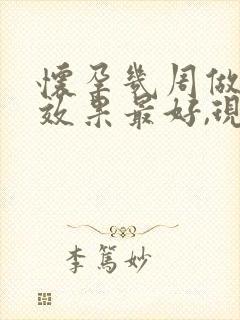 懷孕幾周做
效果最好,現
李篤妙